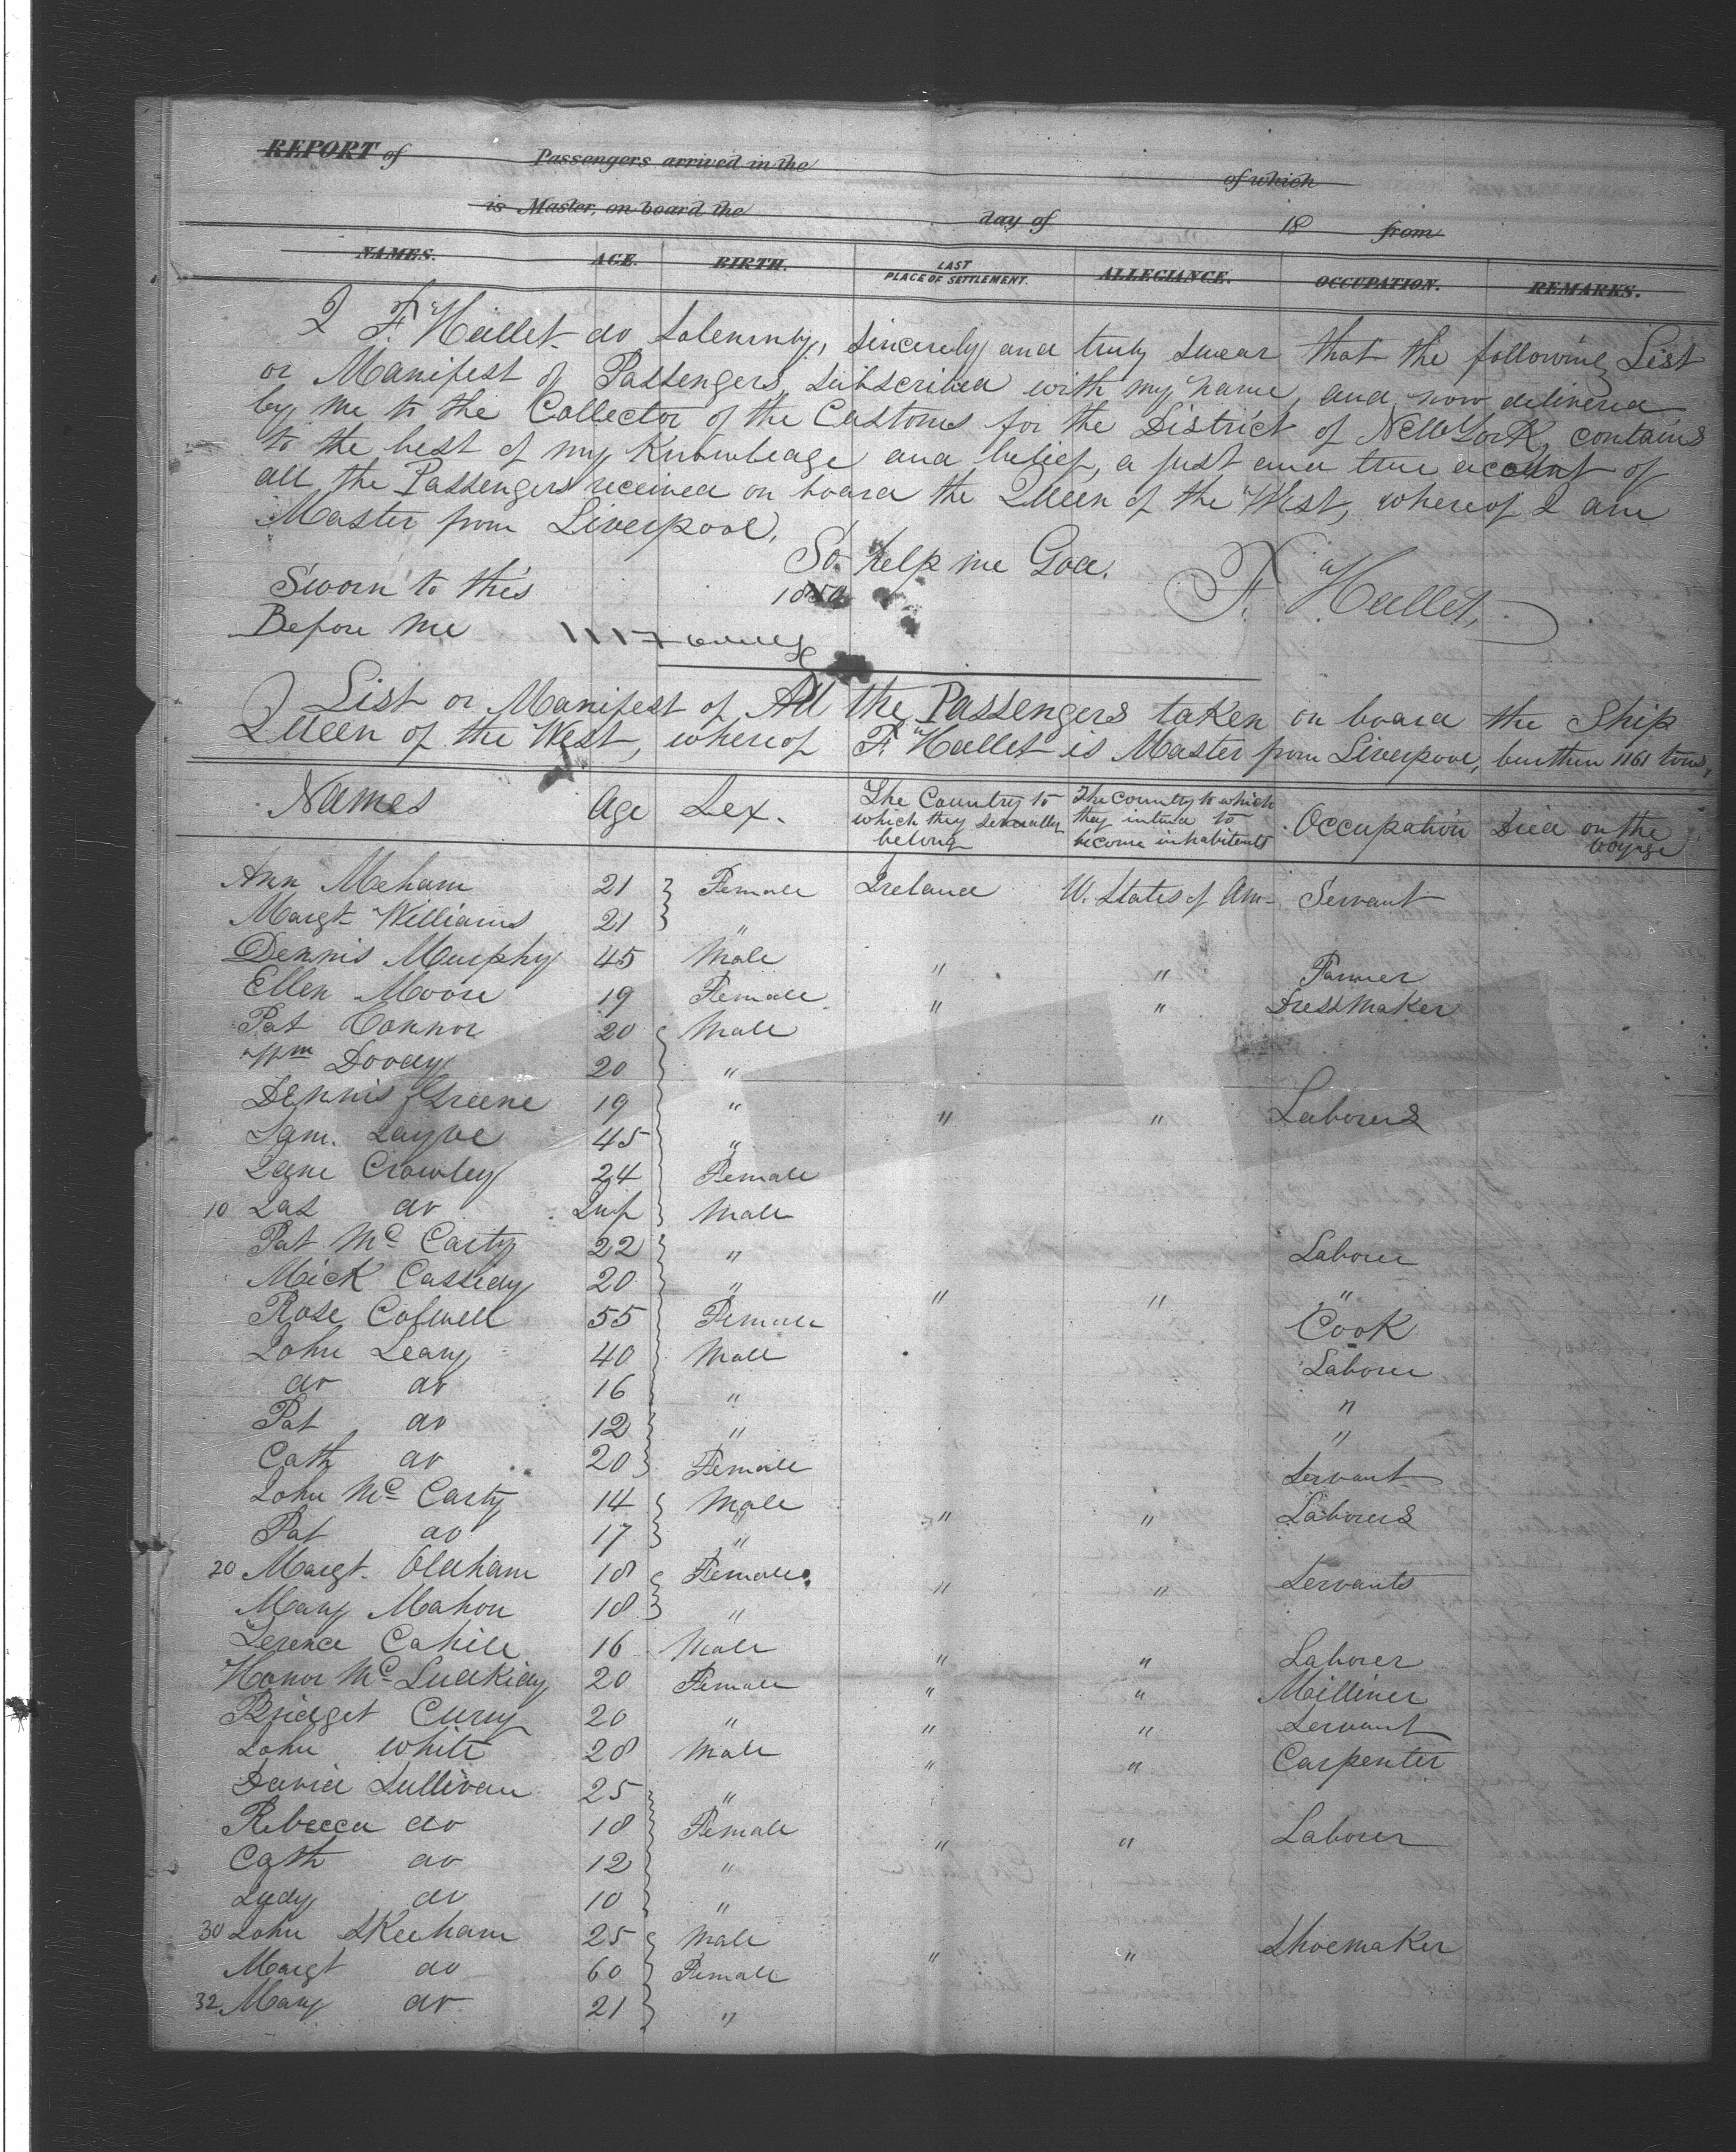 REPORT of Passengers arrived in the of which
is Master, on board the day of 18 from
NAMES. AGE. BIRTH. LAST PLACE OF SETTLEMENT. ALLEGIANCE. OCCUPATION. REMARKS.
I F. Hallet do solemnly, sincerely and truly swear that the following List
or Manifest of Passengers, subscribed with my name, and now delivered
by me to the Collector of the Customs for the District of New York, contains
to the best of my Knowledge and belief, a just and true account of
all the Passengers received on board the Queen of the West, whereof I am
Master from Liverpool.
So help me God.
Sworn to this 1850 F. Hallet,
Before me
List or Manifest of All the Passengers taken on board the Ship
Queen of the West, whereof F. Hallet is Master from Liverpool, burthen 1161 tons,
Names Age Sex. The Country to which they severally belong The Country to which they intend to become inhabitants Occupation Died on the Voyage
Ann Meham 21 Female Ireland U. States of Am- Servant
Margt Williams 21 "
Dennis Murphy 45 Male " " Farmer
Ellen Moore 19 Female " " Dressmaker
Pat Connor 20 Male
Wm Doody 20 "
Dennis Greene 19 " " " Laborers
Sam. 45 "
Jane Crowley 24 Female
10 Jas do Inf Male
Pat Mc Carty 22 " Laborer
Mick Cassidy 20 " " " "
Rose Colwell 55 Female Cook
John Leary 40 Male Laborer
do do 16 " "
Pat do 12 " "
Cath do 20 Female Servant
John Mc Carty 14 Male " " Laborers
Pat do 17 "
20 Margt. Oldham 18 Female " " Servants
Mary Mahon 18 "
Terence Cahill 16 Male " " Laborer
Honor Mc 20 Female " " Milliner
Bridget Curry 20 " " " Servant
John White 28 Male " " Carpenter
David Sullivan 25 "
Rebecca do 18 Female " " Laborer
Cath do 12 "
Judy do 10 "
30 John Skeeham 25 Male " " Shoemaker
Margt do 60 Female
32 Mary do 21 "